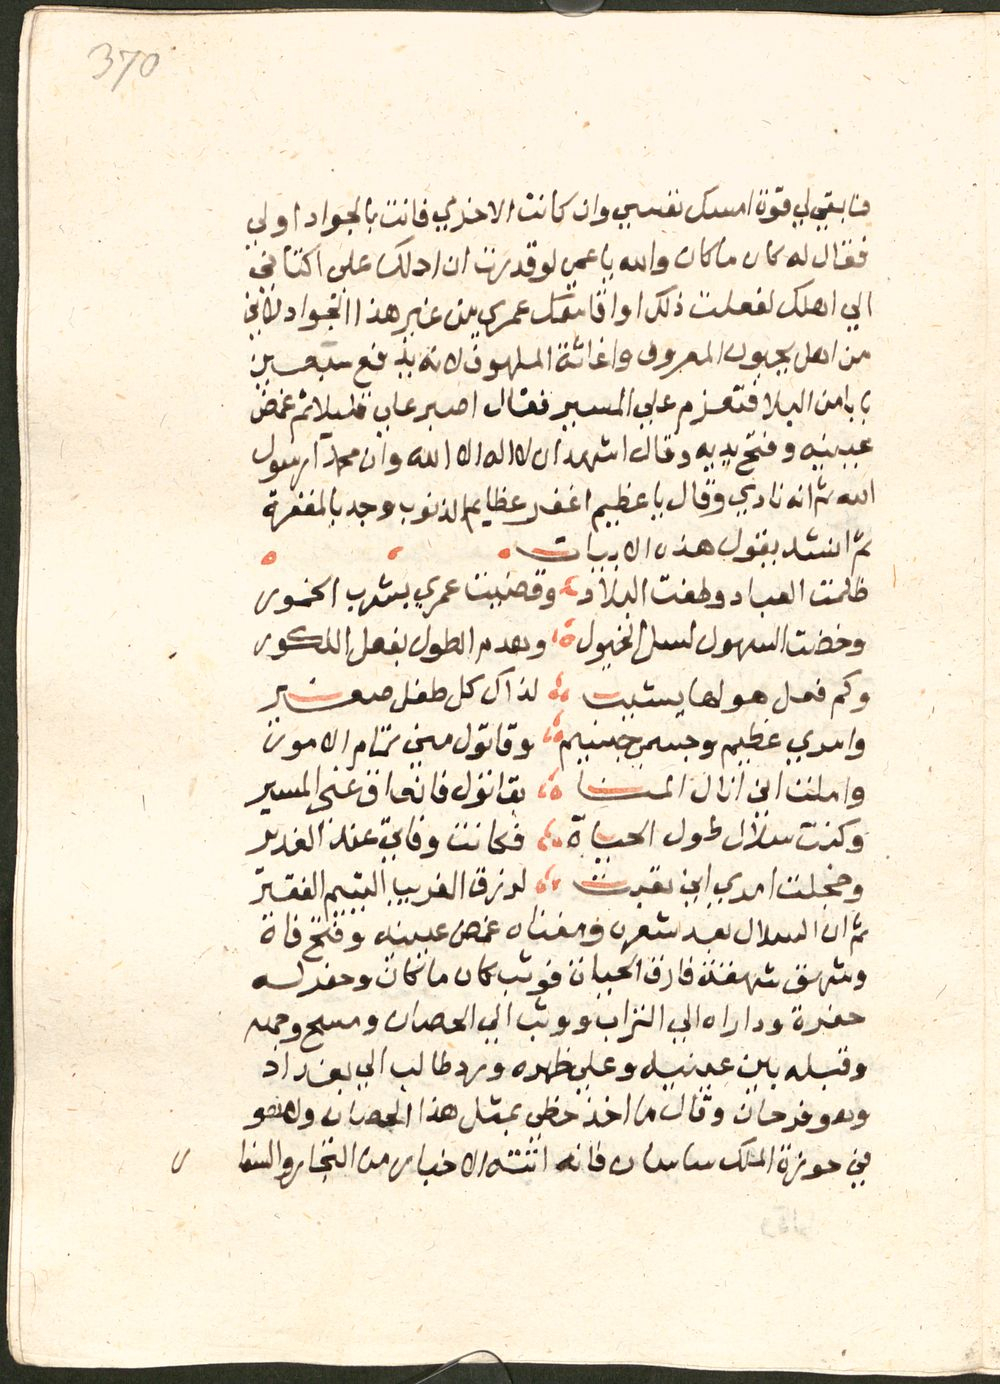 370
فما بقي لي قوة امسك نفسي وان كانت الاخري فانت بالجواد اولي
فقال له كان ماكان والله يا عمي لو قدرت ان ادلك على اكتافي
الي اهلك لفعلت ذلك او اقاسمك عمري من غير هذا الجواد لاني
من اهل يحبون المعروف واغاثة الملهوف لانه يدفع سبعين
بابا من البلا فتعزم علي المسير فقال اصبر علي قليلا ثم غمض
عينيه وفتح يديه وقال اشهد ان لا اله الا الله وان محمدا رسول
الله ثم انه نادي وقال يا عظيم اغفر عظايم الذنوب وجد بالمغفرة
ثم انشد يقول هذه الابيات
ظلمت العباد وطفت البلاد وقضيت عمري بشرب الخمور
وخضت السهول لسل الخيول وهدم الطول بفعل النكور
وكم فعل هولها يشيب لذاك كل طفل صغير
وامري عظيم وجسمي جسيم وقاتول مني تمام الامور
واملت اني انال المنا بقاتول فانعاق عني المسير
وكنت سلال طول الحياة فكانت وفاتي عند الغدير
وجملت امري اني تعبت لرزق الغريب اليتيم الفقير
ثم ان السلال بعد شعره ومعناه غمض عينيه وفتح فاه
وشهق شهقة فارق الحياة فوثب كان ماكان وحفر له
حفرة وداراه الي التراب ووثب الي الحصان ومسح وجهه
وقبله بين عينيه وعلي ظهره ورد طالب الي بغداد
وهو فرحان وقال ما اخذ حظي بمثل هذا الحصان ولاهو
في حوزة الملك ساسان فانه اتته الاخبار من التجار والسفا ر